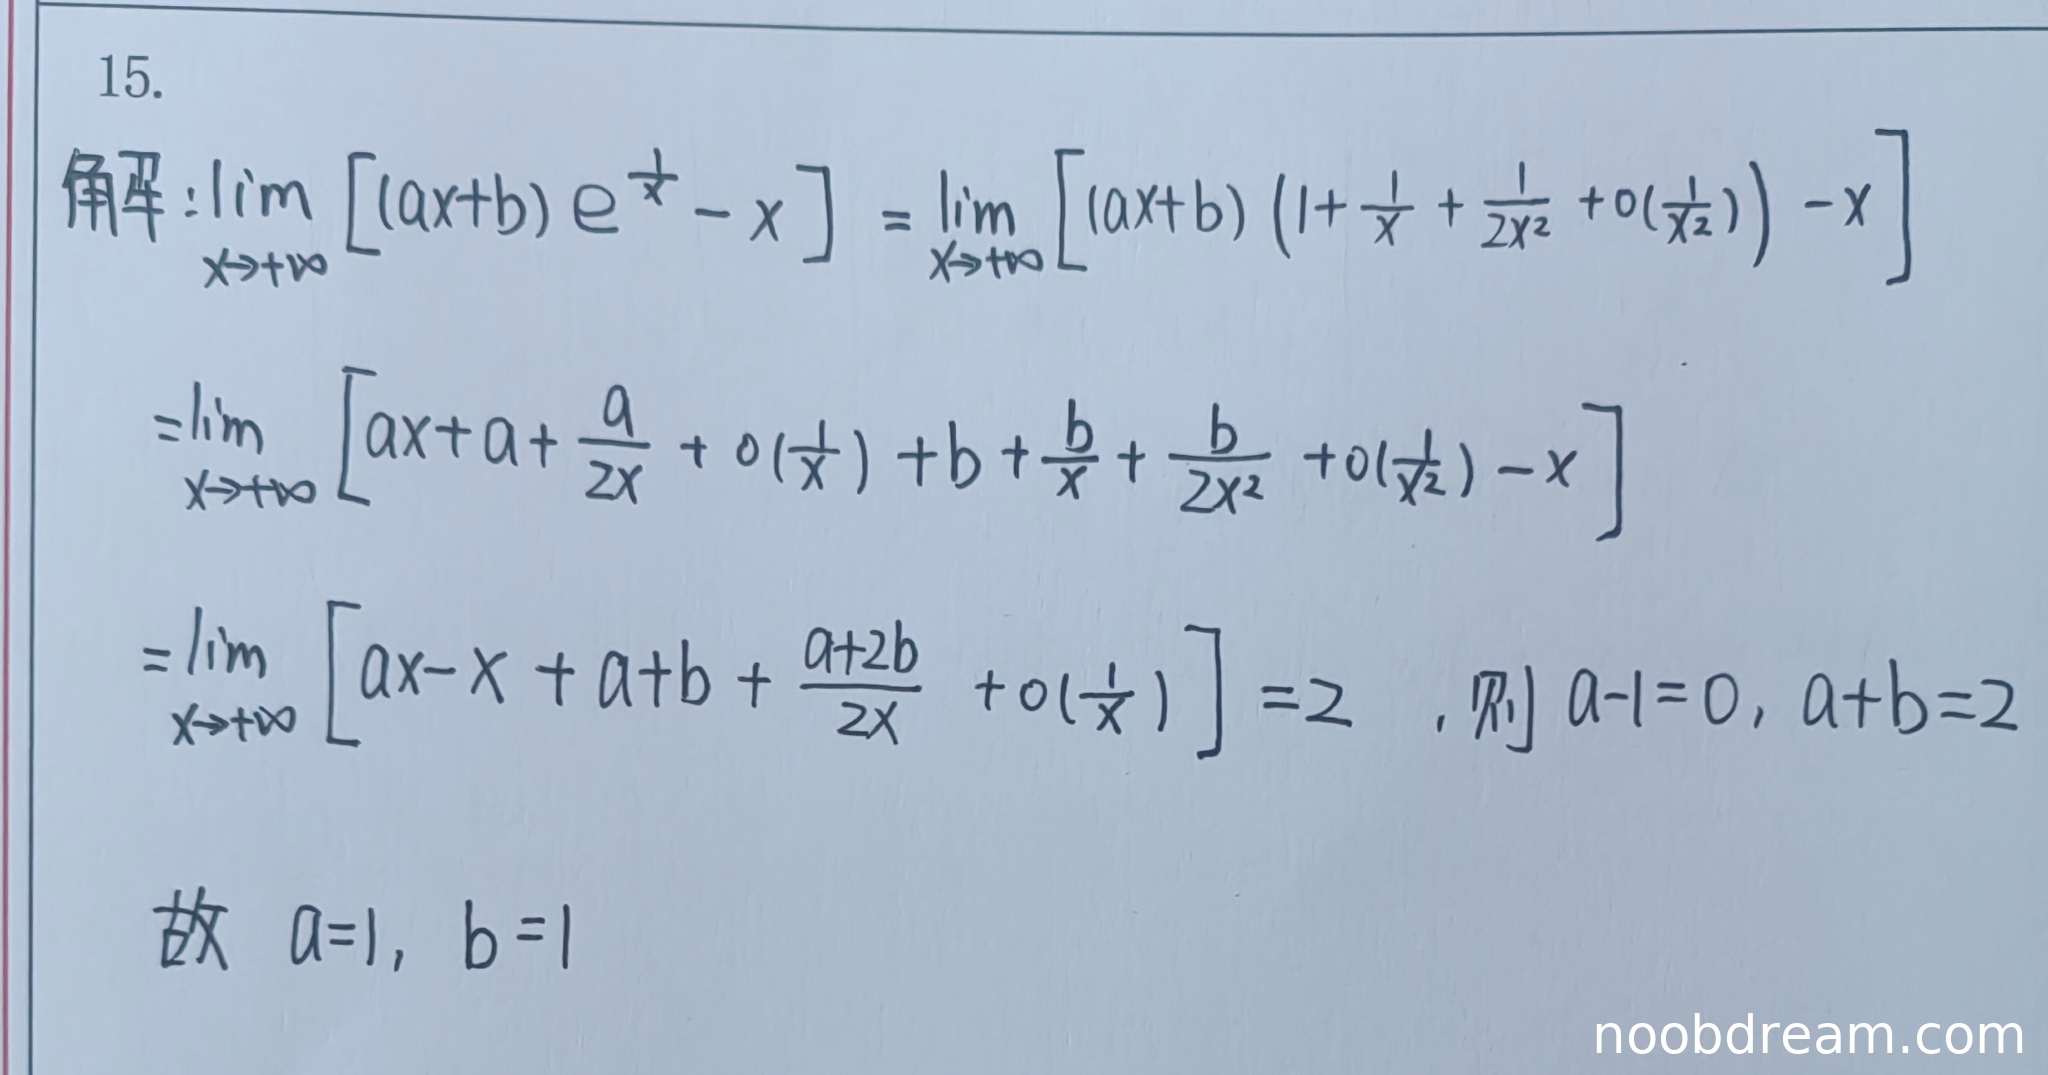 15.
解:lim x→+∞ [(ax+b) e^{1/x} - x] = lim x→+∞ [(ax+b) (1+ 1/x + 1/2x² + o(1/x²)) - x]
=lim x→+∞ [ax+a+ a/2x + o(1/x) +b+ b/x + b/2x² +o(1/x²) - x]
=lim x→+∞ [ax-x + a+b + a+2b/2x +o(1/x)] =2 , 则 a-1=0, a+b=2
故 a=1, b=1
noobdream.com